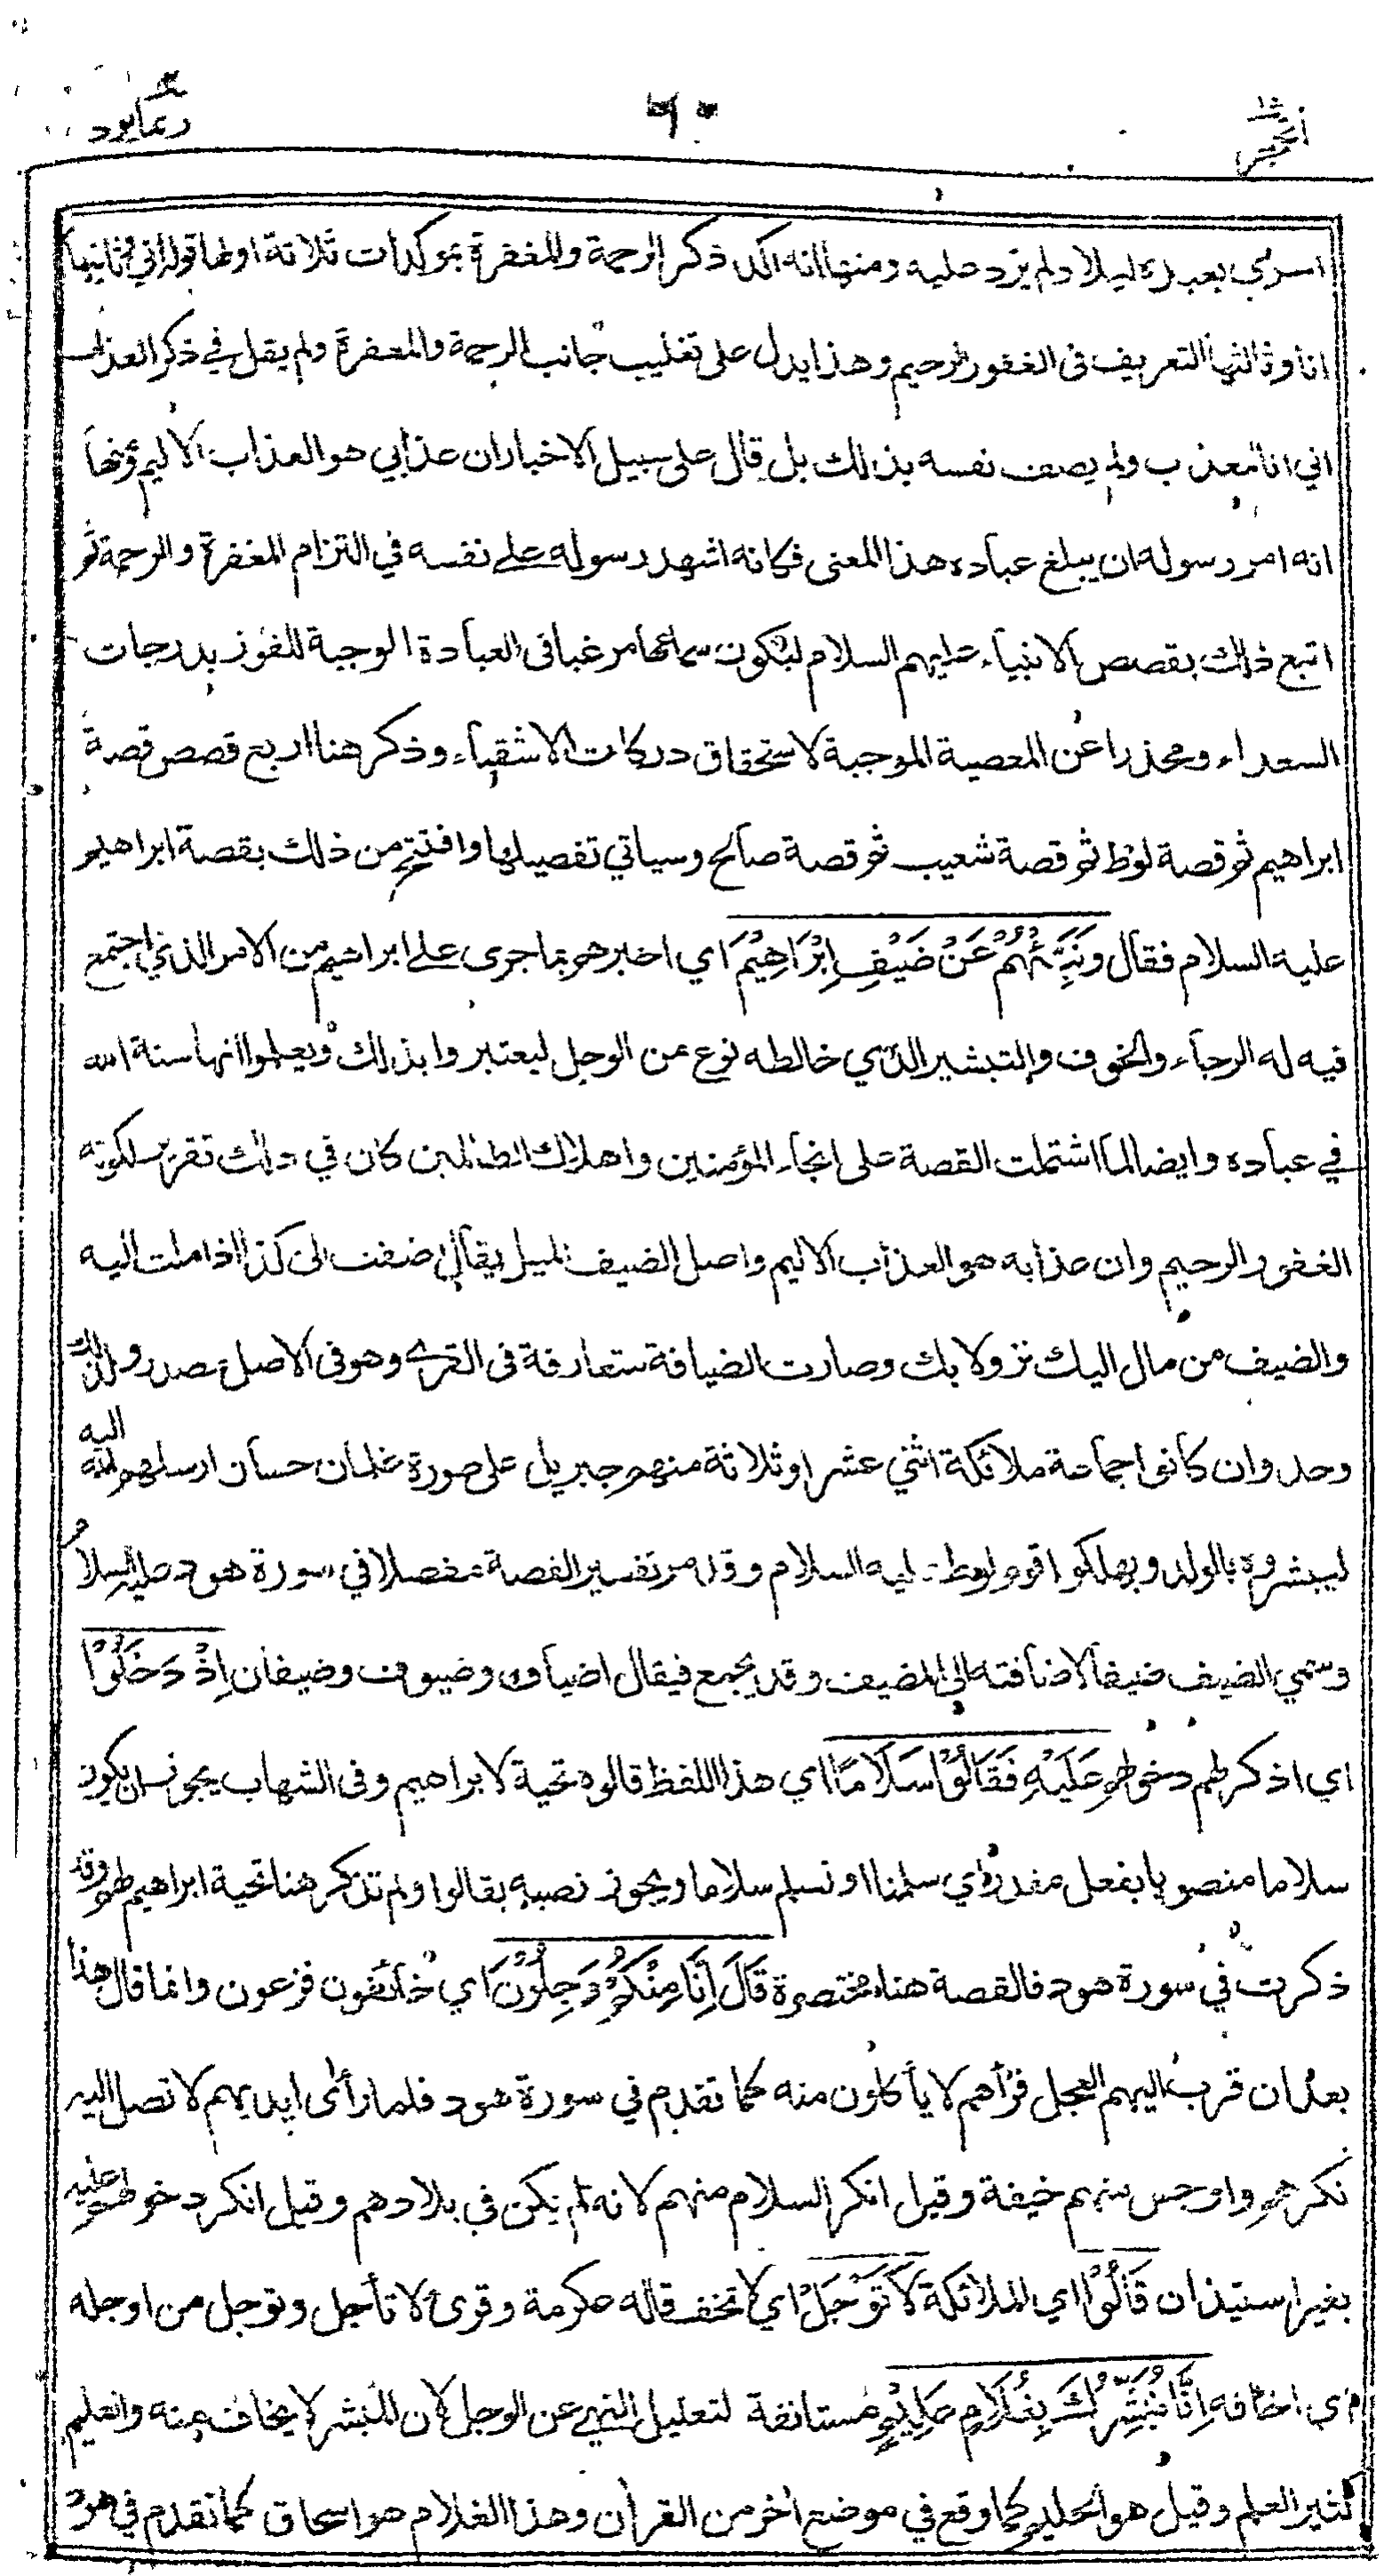 ربما يود
٦٠
الحجر ١٥
اسرى بعبده ليلا ولم يزد عليه ومنها انه اكد ذكر الرحمة والمغفرة بموكدات ثلاثة اولها قوله اني وثانيها
انا وثالثها التعريف فى الغفور الرحيم وهذا يدل على تغليب جانب الرحمة والمغفرة ولم يقل في ذكر العذاب
اني انا المعذب ولم يصف نفسه بذلك بل قال على سبيل الاخبار ان عذابي هو العذاب الاليم ومنها
انه امر رسوله ان يبلغ عباده هذا المعنى فكانه اشهد رسوله على نفسه في التزام المغفرة والرحمة ثم
اتبع ذلك بقصص الانبياء عليهم السلام ليكون سماعها مرغبا فى العبادة الموجبة للفوز بدرجات
السعداء ومحذرا عن المعصية الموجبة لاستحقاق دركات الاشقياء وذكر هنا اربع قصص قصة
ابراهيم ثم قصة لوط ثم قصة شعيب ثم قصة صالح وسياتي تفصيلها وافتتح من ذلك بقصة ابراهيم
عليه السلام فقال وَنَبِّئْهُمْ عَنْ ضَيْفِ اِبْرَاهِيْمَ اي اخبرهم بما جرى على ابراهيم من الامر الذي اجتمع
فيه له الرجاء والخوف والتبشير الذي خالطه نوع من الوجل ليعتبروا بذلك ويعلموا انها سنة الله
في عباده وايضا لما اشتملت القصة على انجاء المؤمنين واهلاك الظالمين كان في ذلك تقرير لكونه
الغفور الرحيم وان عذابه هو العذاب الاليم واصل الضيف الميل يقال ضفت الى كذا اذا ملت اليه
والضيف من مال اليك نزولا بك وصارت الضيافة متعارفة فى القرى وهو فى الاصل مصدر ولذلك
وحد وان كانوا جماعة ملائكة اثني عشر او ثلاثة منهم جبريل على صورة غلمان حسان ارسلهم الله اليه
ليبشروه بالولد ويهلكوا قوم لوط عليه السلام وقد مر تفسير القصة مفصلا في سورة هود عليه السلام
وسمي الضيف ضيفا لاضافته الى المضيف وقد يجمع فيقال اضياف وضيوف وضيفان اِذْ دَخَلُوْا
اي اذكر لهم دخولهم عَلَيْهِ فَقَالُوْا سَلَامًا اي هذا اللفظ قالوه تحية لابراهيم وفى الشهاب يجوز ان يكون
سلاما منصوبا بفعل مقدر اي سلمنا او نسلم سلاما ويجوز نصبه بقالوا ولم تذكر هنا تحية ابراهيم لهم وقد
ذكرت في سورة هود فالقصة هنا مختصرة قَالَ اِنَّا مِنْكُمْ وَجِلُوْنَ اي خائفون فزعون وانما قال هذا
بعد ان قرب اليهم العجل فرأهم لا يأكلون منه كما تقدم في سورة هود فلما رأى ايديهم لا تصل اليه
نكرهم واوجس منهم خيفة وقيل انكر السلام منهم لانه لم يكن في بلادهم وقيل انكر دخولهم عليه
بغير استيذان قَالُوْا اي الملائكة لَا تَوْجَلْ اي لا تخف قاله عكرمة وقرئ لا تأجل وتوجل من اوجله
اي اخافه اِنَّا نُبَشِّرُكَ بِغُلَامٍ عَلِيْمٍ مستانفة لتعليل النهي عن الوجل لان المبشر لا يخاف منه والعليم
كثير العلم وقيل هو الحليم كما وقع في موضع اخر من القرأن وهذا الغلام هو اسحاق كما تقدم في هود